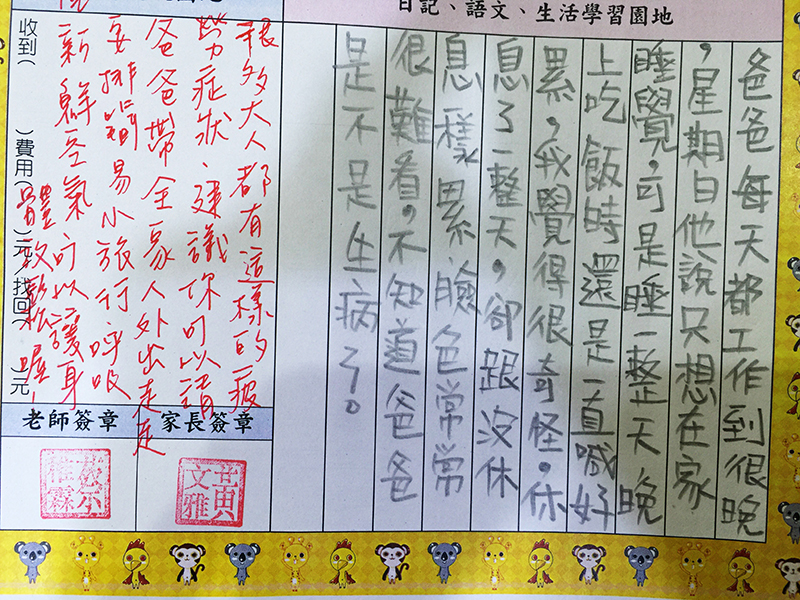 日記、語文、生活學習園地
爸爸每天都工作到很晚
，星期日他說只想在家
睡覺，可是睡一整天，晚
上吃飯時還是一直喊好
累，我覺得很奇怪。休
息了一整天，卻跟沒休
息一樣累、臉色常常
很難看。不知道爸爸
是不是生病了。
很多大人都有這樣的疲
勞症狀、建議你可以請
爸爸帶全家人外出走走
安排簡易小旅行呼吸
新鮮空氣可以讓身
體放鬆喔！
收到( )費用( )元，找回( )元
家長簽章
老師簽章
文雅